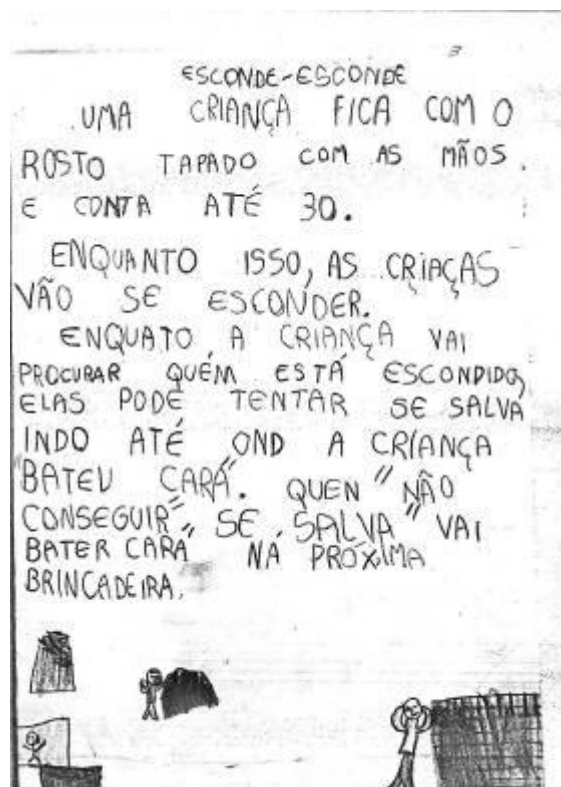 3
ESCONDE-ESCONDE
UMA CRIANÇA FICA COM O
ROSTO TAPADO COM AS MÃOS.
E CONTA ATÉ 30.
ENQUANTO ISSO, AS CRIAÇAS
VÃO SE ESCONDER.
ENQUATO A CRIANÇA VAI
PROCURAR QUÉM ESTÁ ESCONDIDO,
ELAS PODE TENTAR SE SALVA
INDO ATÉ OND A CRIANÇA
BATEU "CARÁ". QUEN "NÃO
CONSEGUIR" SE "SALVA" VAI
BATER CARA NA PRÓXIMA
BRINCADEIRA.